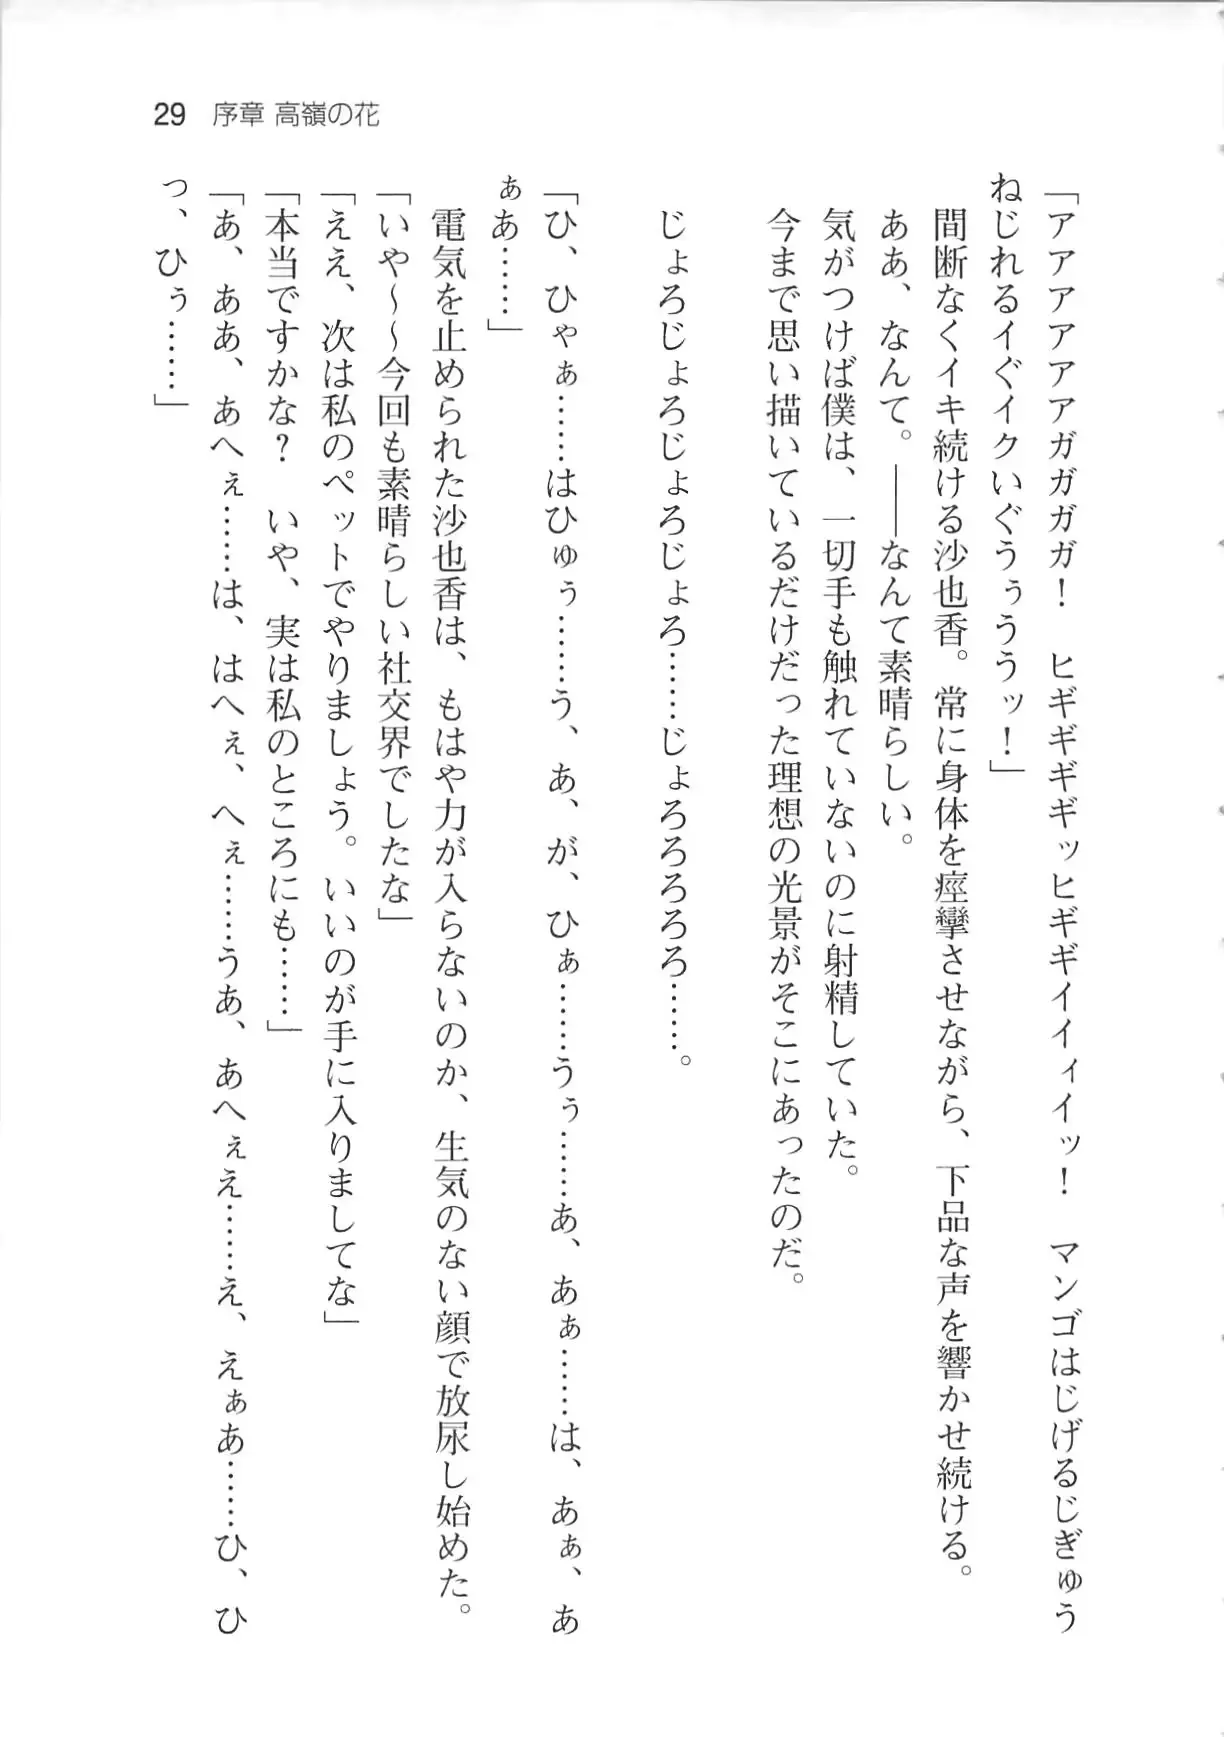 29 序章 高嶺の花
「アアアアアアガガガガ！ ヒギギギギッヒギギイイィイッ！ マンゴはじげるじぎゅう
ねじれるイぐイクいぐうぅううッ！」
間断なくイキ続ける沙也香。常に身体を痙攣させながら、下品な声を響かせ続ける。
ああ、なんて。――なんて素晴らしい。
気がつけば僕は、一切手も触れていないのに射精していた。
今まで思い描いているだけだった理想の光景がそこにあったのだ。
じょろじょろじょろじょろ……じょろろろろろ……。
「ひ、ひゃぁ……はひゅぅ……う、あ、が、ひぁ……うぅ……あ、あぁ……は、あぁ、あ
ぁあ……」
電気を止められた沙也香は、もはや力が入らないのか、生気のない顔で放尿し始めた。
「いや～～今回も素晴らしい社交界でしたな」
「ええ、次は私のペットでやりましょう。いいのが手に入りましてな」
「本当ですかな？ いや、実は私のところにも……」
「あ、ああ、あへぇ……は、はへぇ、へぇ……うあ、あへぇえ……え、えぁあ……ひ、ひ
っ、ひぅ……」